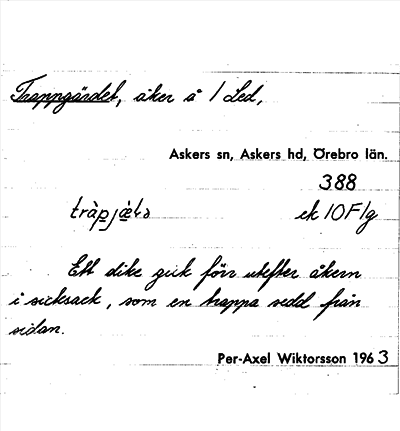 Trappgärdet, åker å 1 Led,
Askers sn, Askers hd, Örebro län.
388
tràpjæ̀tə ek 10F1g
Ett dike gick förr utefter åkern
i sicksack, som en trappa sedd från
sidan.
Per-Axel Wiktorsson 1963